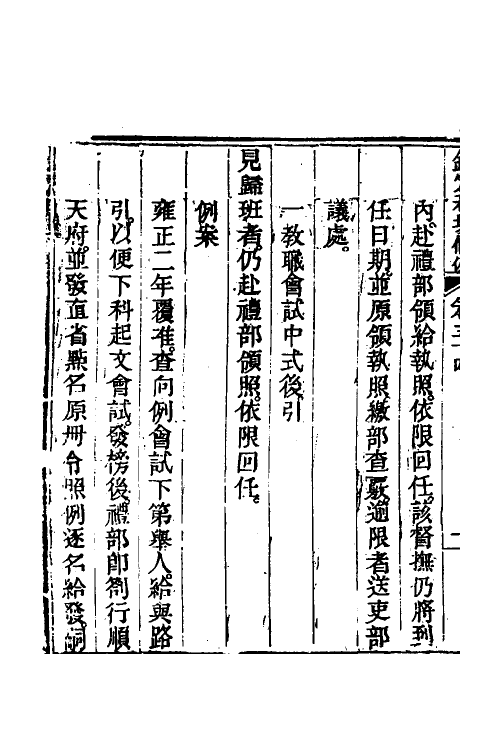 內赴禮部領給執照依限回任該督撫仍將到
任日期並原領執照繳部查覈逾限者送吏部
議處
一教職會試中式後引
見歸班者仍赴禮部領照依限回任
例案
雍正二年覆准查向例會試下第舉人給與路
引以便下科起文會試發榜後禮部卽劄行順
天府並發直省㸃名原冊令照例逐名給發詞